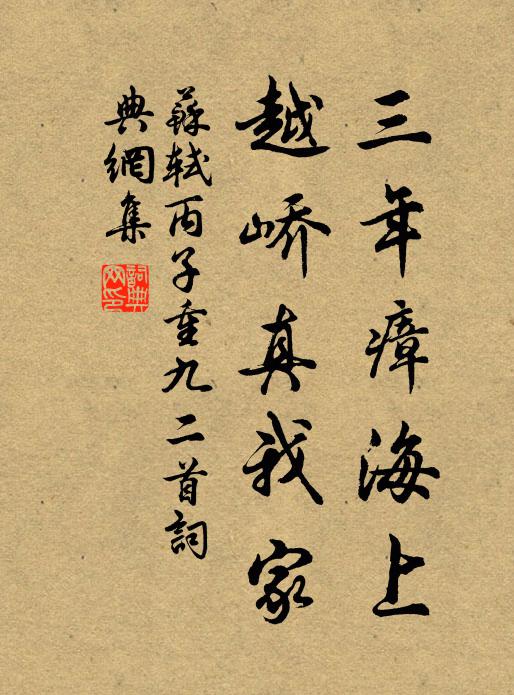 三年瘴海上
越峤真我家
蘇軾丙子重九二首詞
典網集
詞典網印